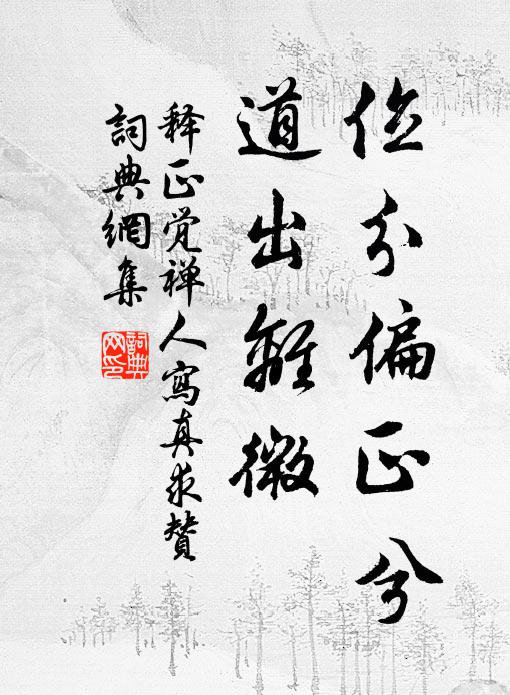 位分偏正兮
道出離微
释正觉禅人寫真求贊
詞典網集
詞典网印